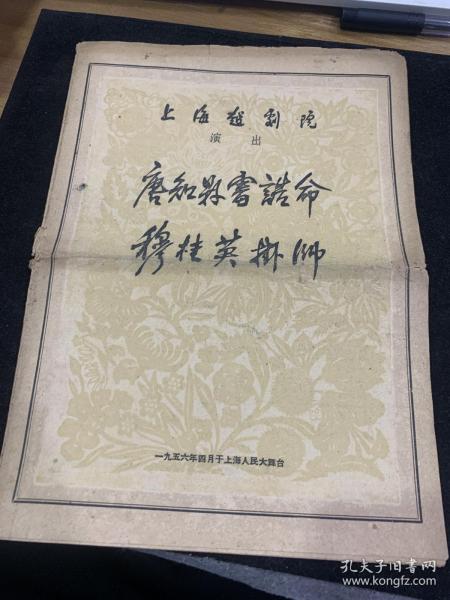 上海越剧院
演出
唐知县审诰命
穆桂英掛帅
一九五六年四月于上海人民大舞台
孔夫子旧书网
www.kongfz.com